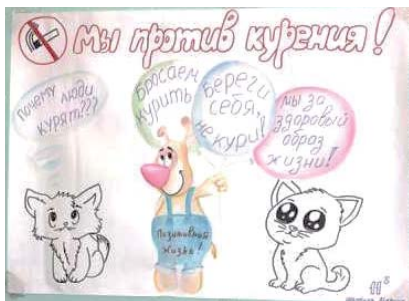 Мы против курения!
Почему люди
курят???
Бросаем
курить
Береги
себя,
не кури!
мы за
здоровый
образ
жизни!
Позитивной
жизни!
11